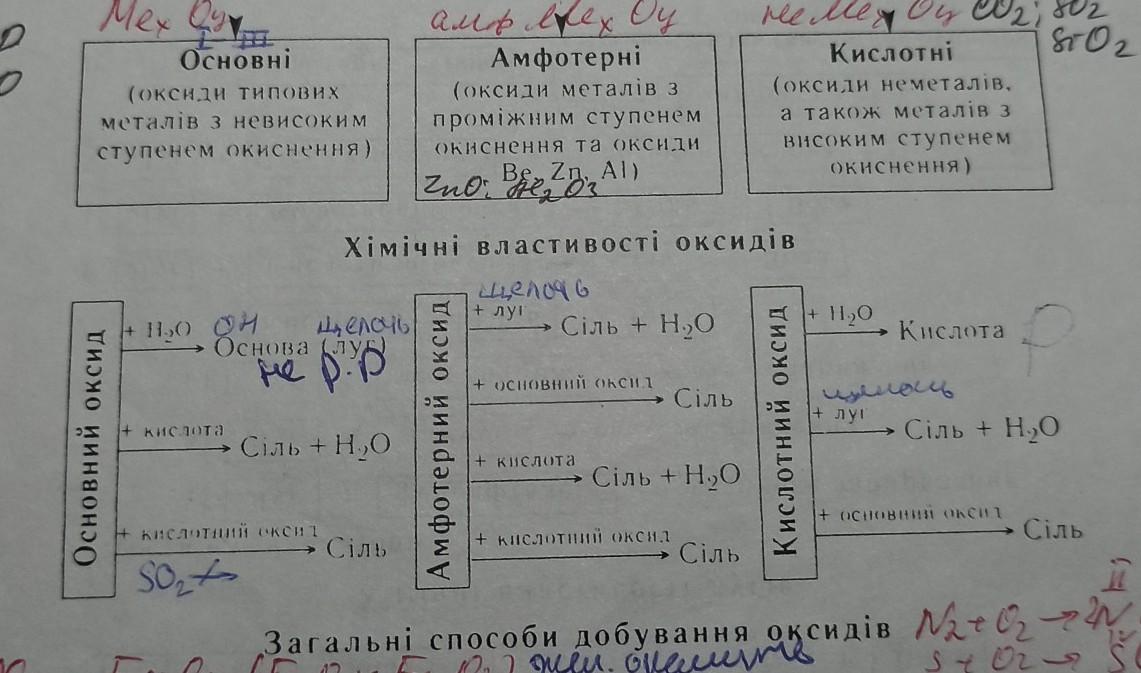 Mex Oy
амф. Mex Oy
неMex Oy CO2; SO2
SiO2
I III
Основні
(оксиди типових
металів з невисоким
ступенем окиснення)
Амфотерні
(оксиди металів з
проміжним ступенем
окиснення та оксиди
Be, Zn, Al)
ZnO;
Кислотні
(оксиди неметалів,
а також металів з
високим ступенем
окиснення)
Хімічні властивості оксидів
Основний оксид
+ H₂O OH щелочь
Основа (луг)
не р.р
+ кислота
Сіль + H₂O
+ кислотний оксид
Сіль
SO₂
Амфотерний оксид
щелочь
+ луг
Сіль + H₂O
+ основний оксид
Сіль
+ кислота
Сіль + H₂O
+ кислотний оксид
Сіль
Кислотний оксид
+ H₂O
Кислота
щелочь
+ луг
Сіль + H₂O
+ основний оксид
Сіль
II
Загальні способи добування оксидів N₂ + O₂ → 2N
S + O₂ → S